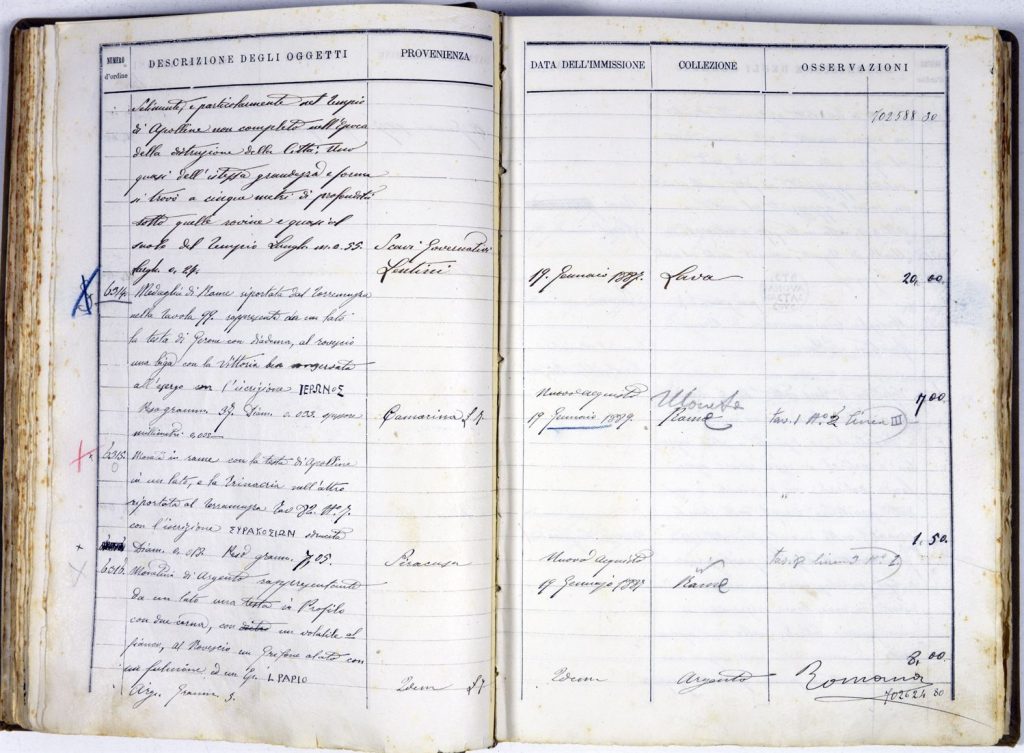 NUMERO d'ordine
DESCRIZIONE DEGLI OGGETTI
PROVENIENZA
Selinunte, e particolarmente nel Tempio
di Apolline non completo nell'Epoca
della distruzione della Città: Uno
quasi dell'istessa e forma
si trovò a cinque metri di profondità
sotto quelle rovine e quasi
suolo del Tempio Lungh. m. 0. 55. Scavi Governativi
Largh. 0. 24.
6314. Medaglia di Rame riportata dal Torremuzza
nella tavola 99. da un lato
la testa di Gerone con diadema, al rovescio
una biga con la Vittoria
all'esergo con l'iscrizione ΙΕΡΩΝΟΣ
Peso grammi 37. Diam. 0. 033. Camarina
millimetri
6315. in rame con la testa di Apolline
in un lato, e la Trinacria nell'altro
riportata al Torremuzza Tav. 82. No. 7.
con l'iscrizione ΣΥΡΑΚΟΣΙΩΝ
Diam. Peso gramm. 7,05. Siracusa
6316. Monetina di Argento rappresentante
da un lato una testa in Profilo
con due corna, con un volatile al
fianco, al Rovescio un Grifone alato con
un fulmine, ed un' Ep. L PAPIO
Arg. Gramm. 3. Idem
DATA DELL'IMMISSIONE
COLLEZIONE
OSSERVAZIONI
702588 30
19. Gennaro 1887. Lava 20, 00
Nuovo acquisto Moneta 7,00
19 Gennaio Rame tav. 1 No. 2 linea III
1. 50.
Nuovo acquisto tav. linea 3 No.
19 Gennajo Rame
8, 00
Idem Argento Romana
702624 80